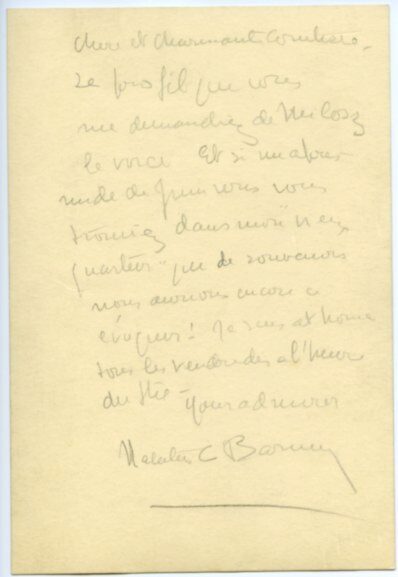 chère et charmante
Le profil que vous
me demandiez de Milosz
le voici Et si un après
midi de juin vous vous
trouviez dans mon "vieux
quartier" que de souvenirs
nous aurions encore à
évoquer! Je suis at home
tous les vendredis à l'heure
du thé - your admirer
Natalie C Barney